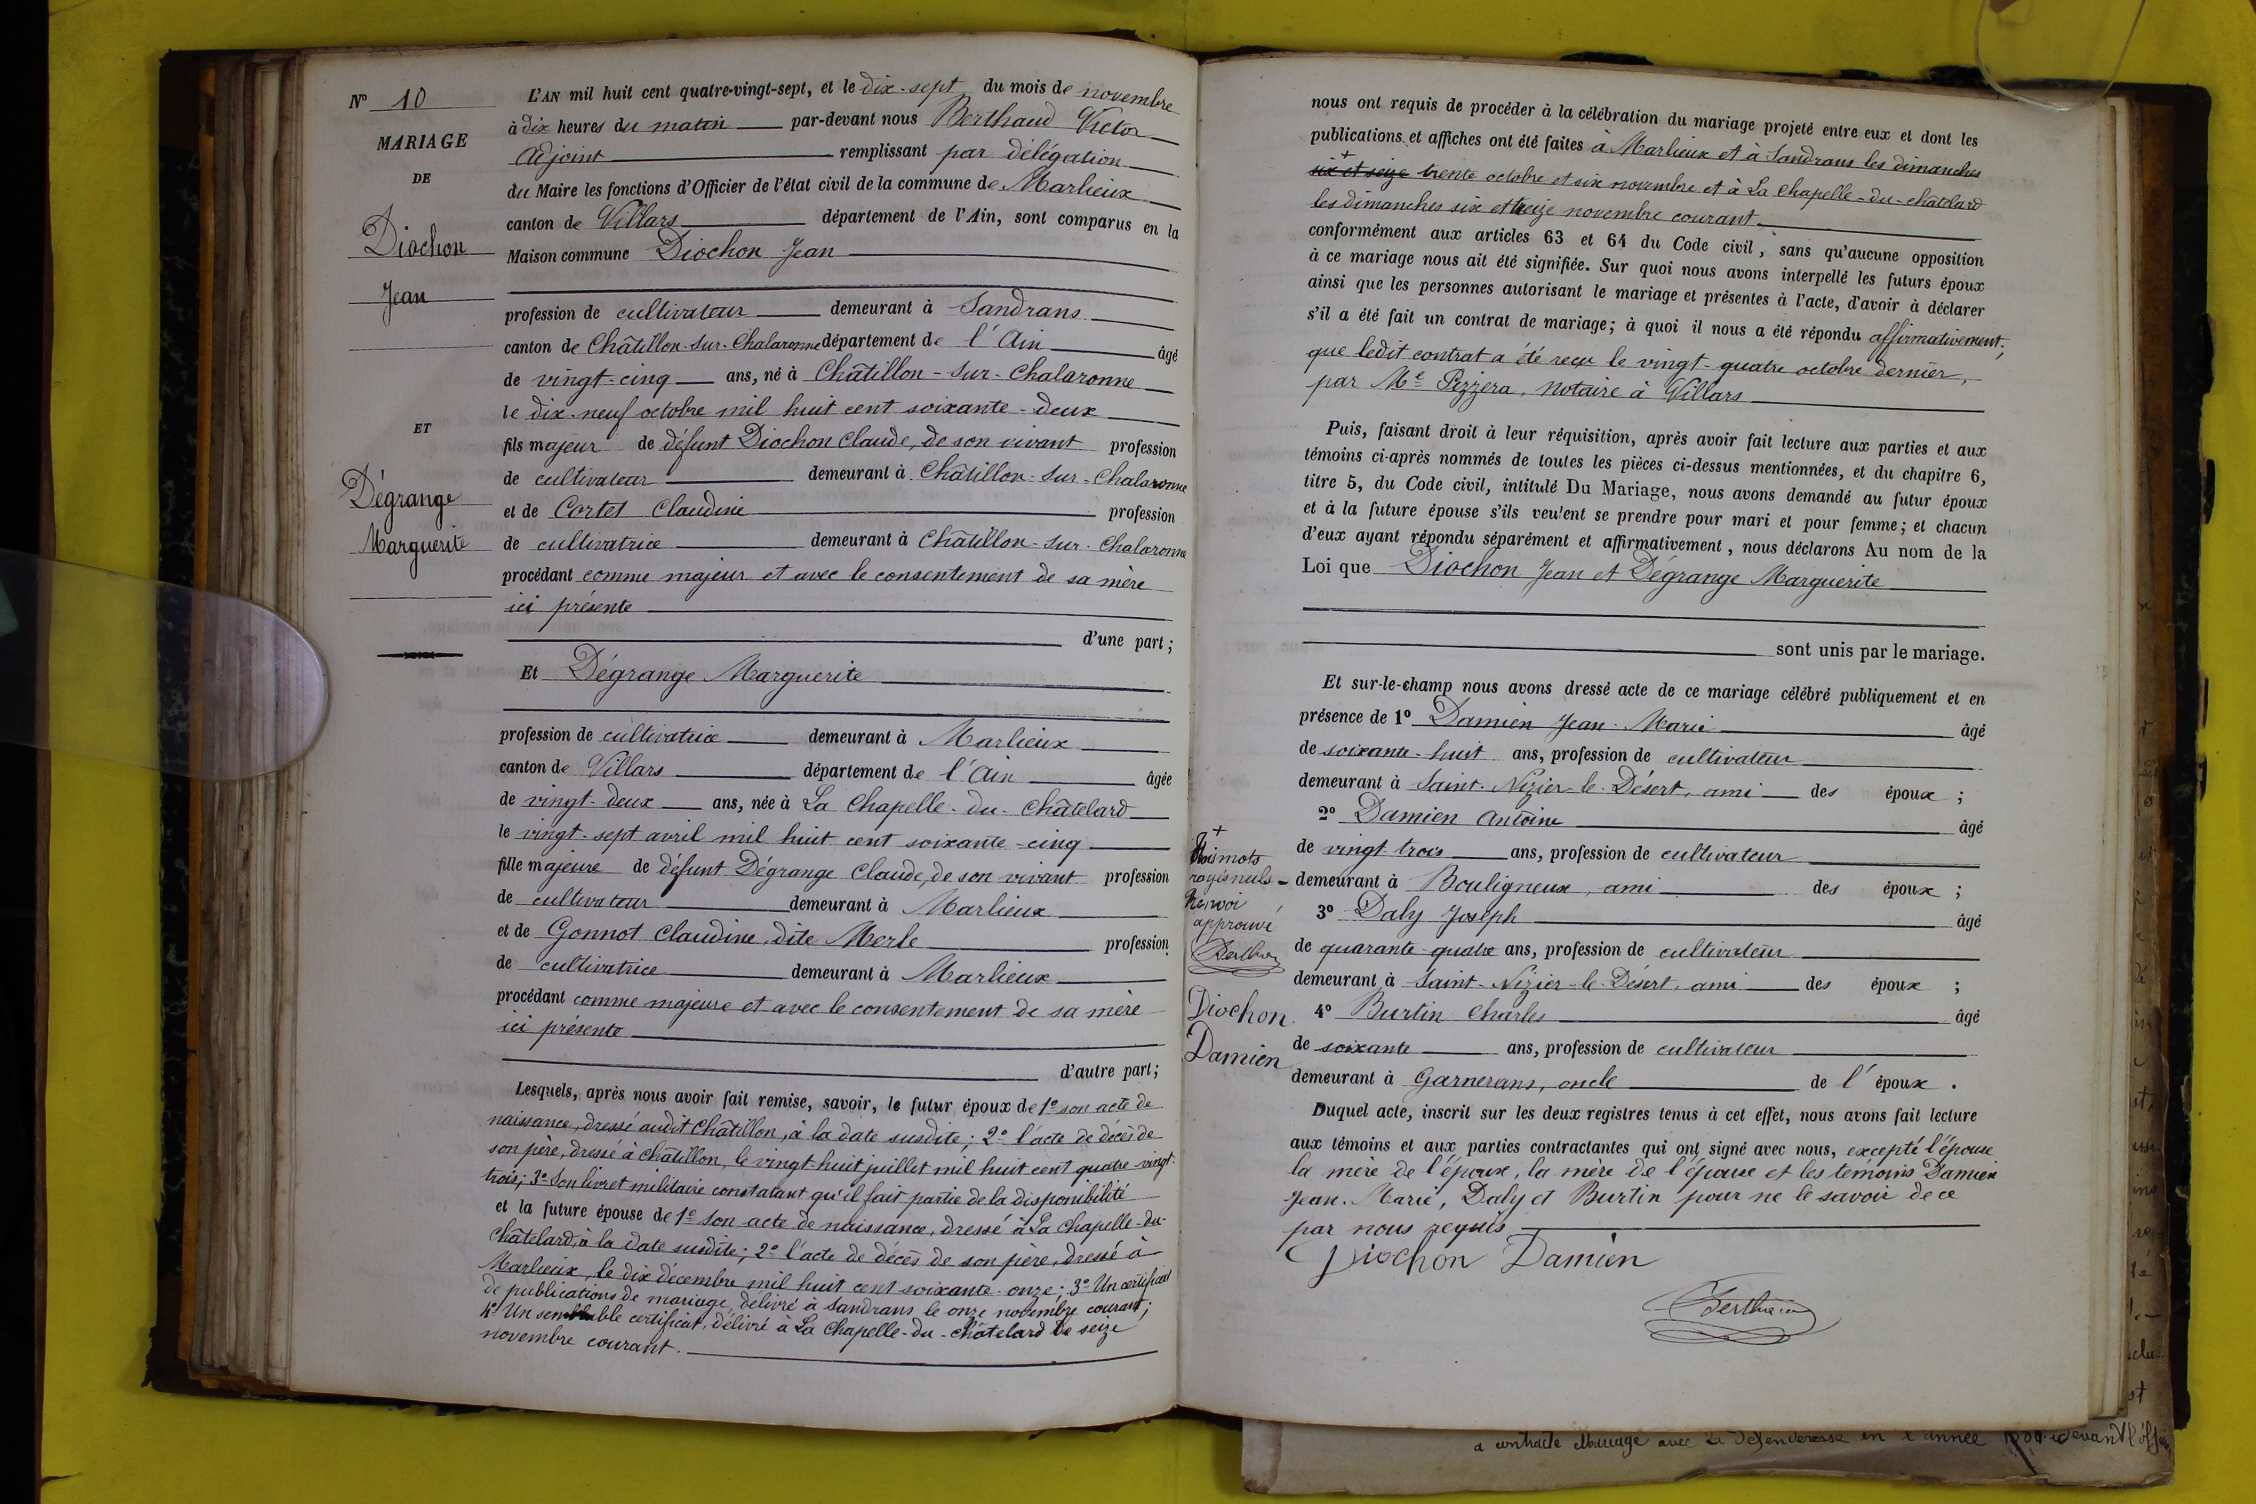 N° 10
MARIAGE
DE
Diochon
Jean
ET
Dégrange
Marguerite
L'AN mil huit cent quatre-vingt-sept, et le dix-sept du mois de novembre
à dix heures du matin par-devant nous Berthaud Victor
Adjoint remplissant par délégation
du Maire les fonctions d'Officier de l'état civil de la commune de Marlieux
canton de Villars département de l'Ain, sont comparus en la
Maison commune Diochon Jean
profession de cultivateur demeurant à Sandrans
canton de Châtillon-sur-Chalaronne département de l'Ain âgé
de vingt-cinq ans, né à Châtillon-sur-Chalaronne
le dix-neuf octobre mil huit cent soixante-deux
fils majeur de défunt Diochon Claude, de son vivant profession
de cultivateur demeurant à Châtillon-sur-Chalaronne
et de Cortet Claudine profession
de cultivatrice demeurant à Châtillon-sur-Chalaronne
procédant comme majeur et avec le consentement de sa mère
ici présente
d'une part ;
Et Dégrange Marguerite
profession de cultivatrice demeurant à Marlieux
canton de Villars département de l'Ain âgée
de vingt-deux ans, née à La Chapelle-du-Châtelard
le vingt-sept avril mil huit cent soixante-cinq
fille majeure de défunt Dégrange Claude, de son vivant profession
de cultivateur demeurant à Marlieux
et de Gonnot Claudine, dite Merle profession
de cultivatrice demeurant à Marlieux
procédant comme majeure et avec le consentement de sa mère
ici présente
d'autre part ;
Lesquels, après nous avoir fait remise, savoir, le futur époux de 1° son acte de
naissance, dressé audit Châtillon, à la date susdite ; 2° l'acte de décès de
son père, dressé à Châtillon, le vingt-huit juillet mil huit cent quatre-vingt-
trois ; 3° Son livret militaire constatant qu'il fait partie de la disponibilité
et la future épouse de 1° Son acte de naissance, dressé à La Chapelle-du-
Châtelard, à la date susdite ; 2° l'acte de décès de son père, dressé à
Marlieux, le dix décembre mil huit cent soixante-onze ; 3° Un certificat
de publications de mariage, délivré à Sandrans le onze novembre courant ;
4° Un semblable certificat, délivré à La Chapelle-du-Châtelard le seize
novembre courant.
nous ont requis de procéder à la célébration du mariage projeté entre eux et dont les
publications et affiches ont été faites à Marlieux et à Sandrans les dimanches
+
six et seize trente octobre et six novembre et à La Chapelle-du-Châtelard
les dimanches six et treize novembre courant
conformément aux articles 63 et 64 du Code civil, sans qu'aucune opposition
à ce mariage nous ait été signifiée. Sur quoi nous avons interpellé les futurs époux
ainsi que les personnes autorisant le mariage et présentes à l'acte, d'avoir à déclarer
s'il a été fait un contrat de mariage ; à quoi il nous a été répondu affirmativement ;
que ledit contrat a été reçu le vingt-quatre octobre dernier,
par Me Pizzera, notaire à Villars
Puis, faisant droit à leur réquisition, après avoir fait lecture aux parties et aux
témoins ci-après nommés de toutes les pièces ci-dessus mentionnées, et du chapitre 6,
titre 5, du Code civil, intitulé Du Mariage, nous avons demandé au futur époux
et à la future épouse s'ils veulent se prendre pour mari et pour femme ; et chacun
d'eux ayant répondu séparément et affirmativement, nous déclarons Au nom de la
Loi que Diochon Jean et Dégrange Marguerite
sont unis par le mariage.
Et sur-le-champ nous avons dressé acte de ce mariage célébré publiquement et en
présence de 1° Damien Jean-Marie âgé
de soixante-huit ans, profession de cultivateur
demeurant à Saint-Nizier-le-Désert, ami des époux ;
2° Damien Antoine âgé
de vingt-trois ans, profession de cultivateur
demeurant à Bouligneux, ami des époux ;
3° Daly Joseph âgé
de quarante-quatre ans, profession de cultivateur
demeurant à Saint-Nizier-le-Désert, ami des époux ;
4° Burtin Charles âgé
de soixante ans, profession de cultivateur
demeurant à Garnerans, oncle de l'époux.
Duquel acte, inscrit sur les deux registres tenus à cet effet, nous avons fait lecture
aux témoins et aux parties contractantes qui ont signé avec nous, excepté l'épouse
la mère de l'époux, la mère de l'épouse et les témoins Damien
Jean-Marie, Daly et Burtin pour ne le savoir de ce
par nous requis
Diochon Damien
Berthaud
+
Trois mots
rayés nuls
Renvoi
approuvé
Diochon
Damien
a contracté Mariage avec la défenderesse en l'année